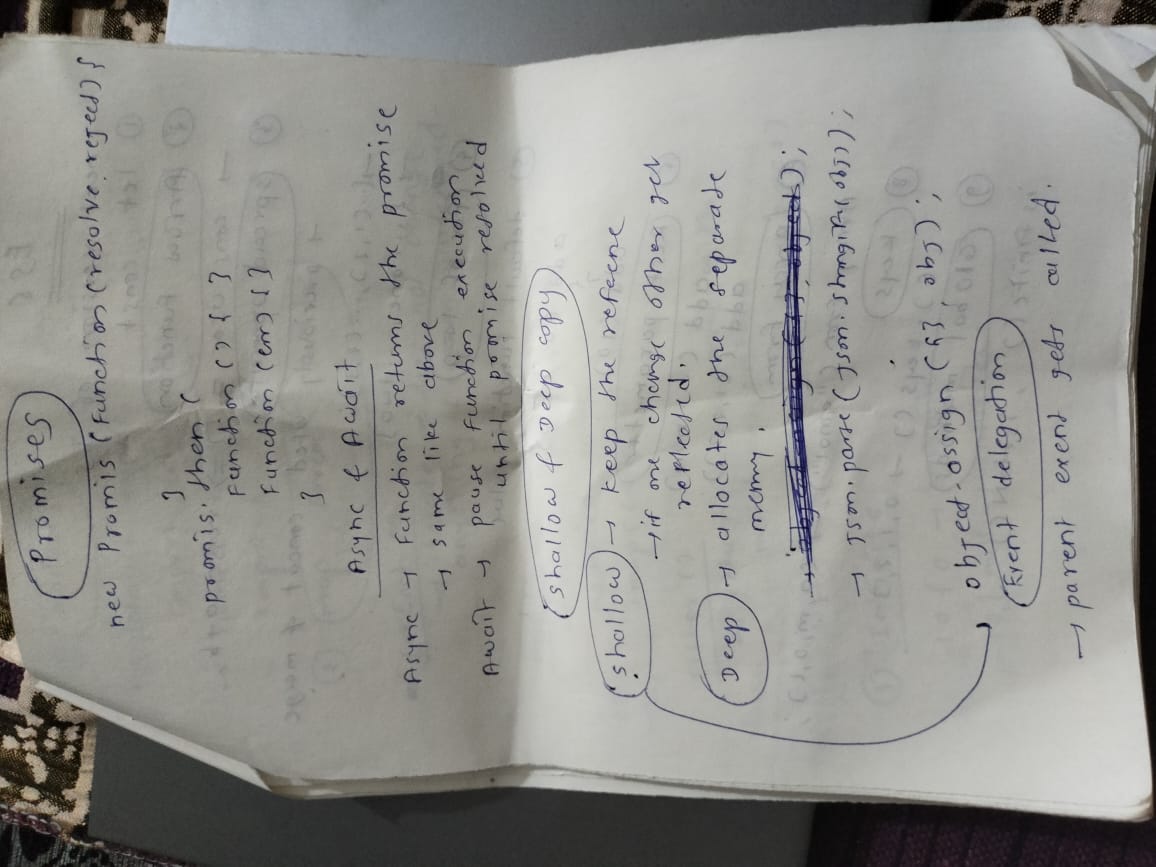 Promises
new Promis (Function (resolve, reject) {
}
promis. then (
Function () { }
Function (err) { }
}
Async & Await
Async → Function returns the promise
→ same like above
Await → pause function execution
until promise resolved
shallow & Deep copy
shallow → keep the referene
→ if one change other get
reflected.
Deep → allocates the separate
memry.
→ Json. parse ( Json. stringify (obj));
object. assign ({}, obj);
Event delegation
→ parent event gets called.